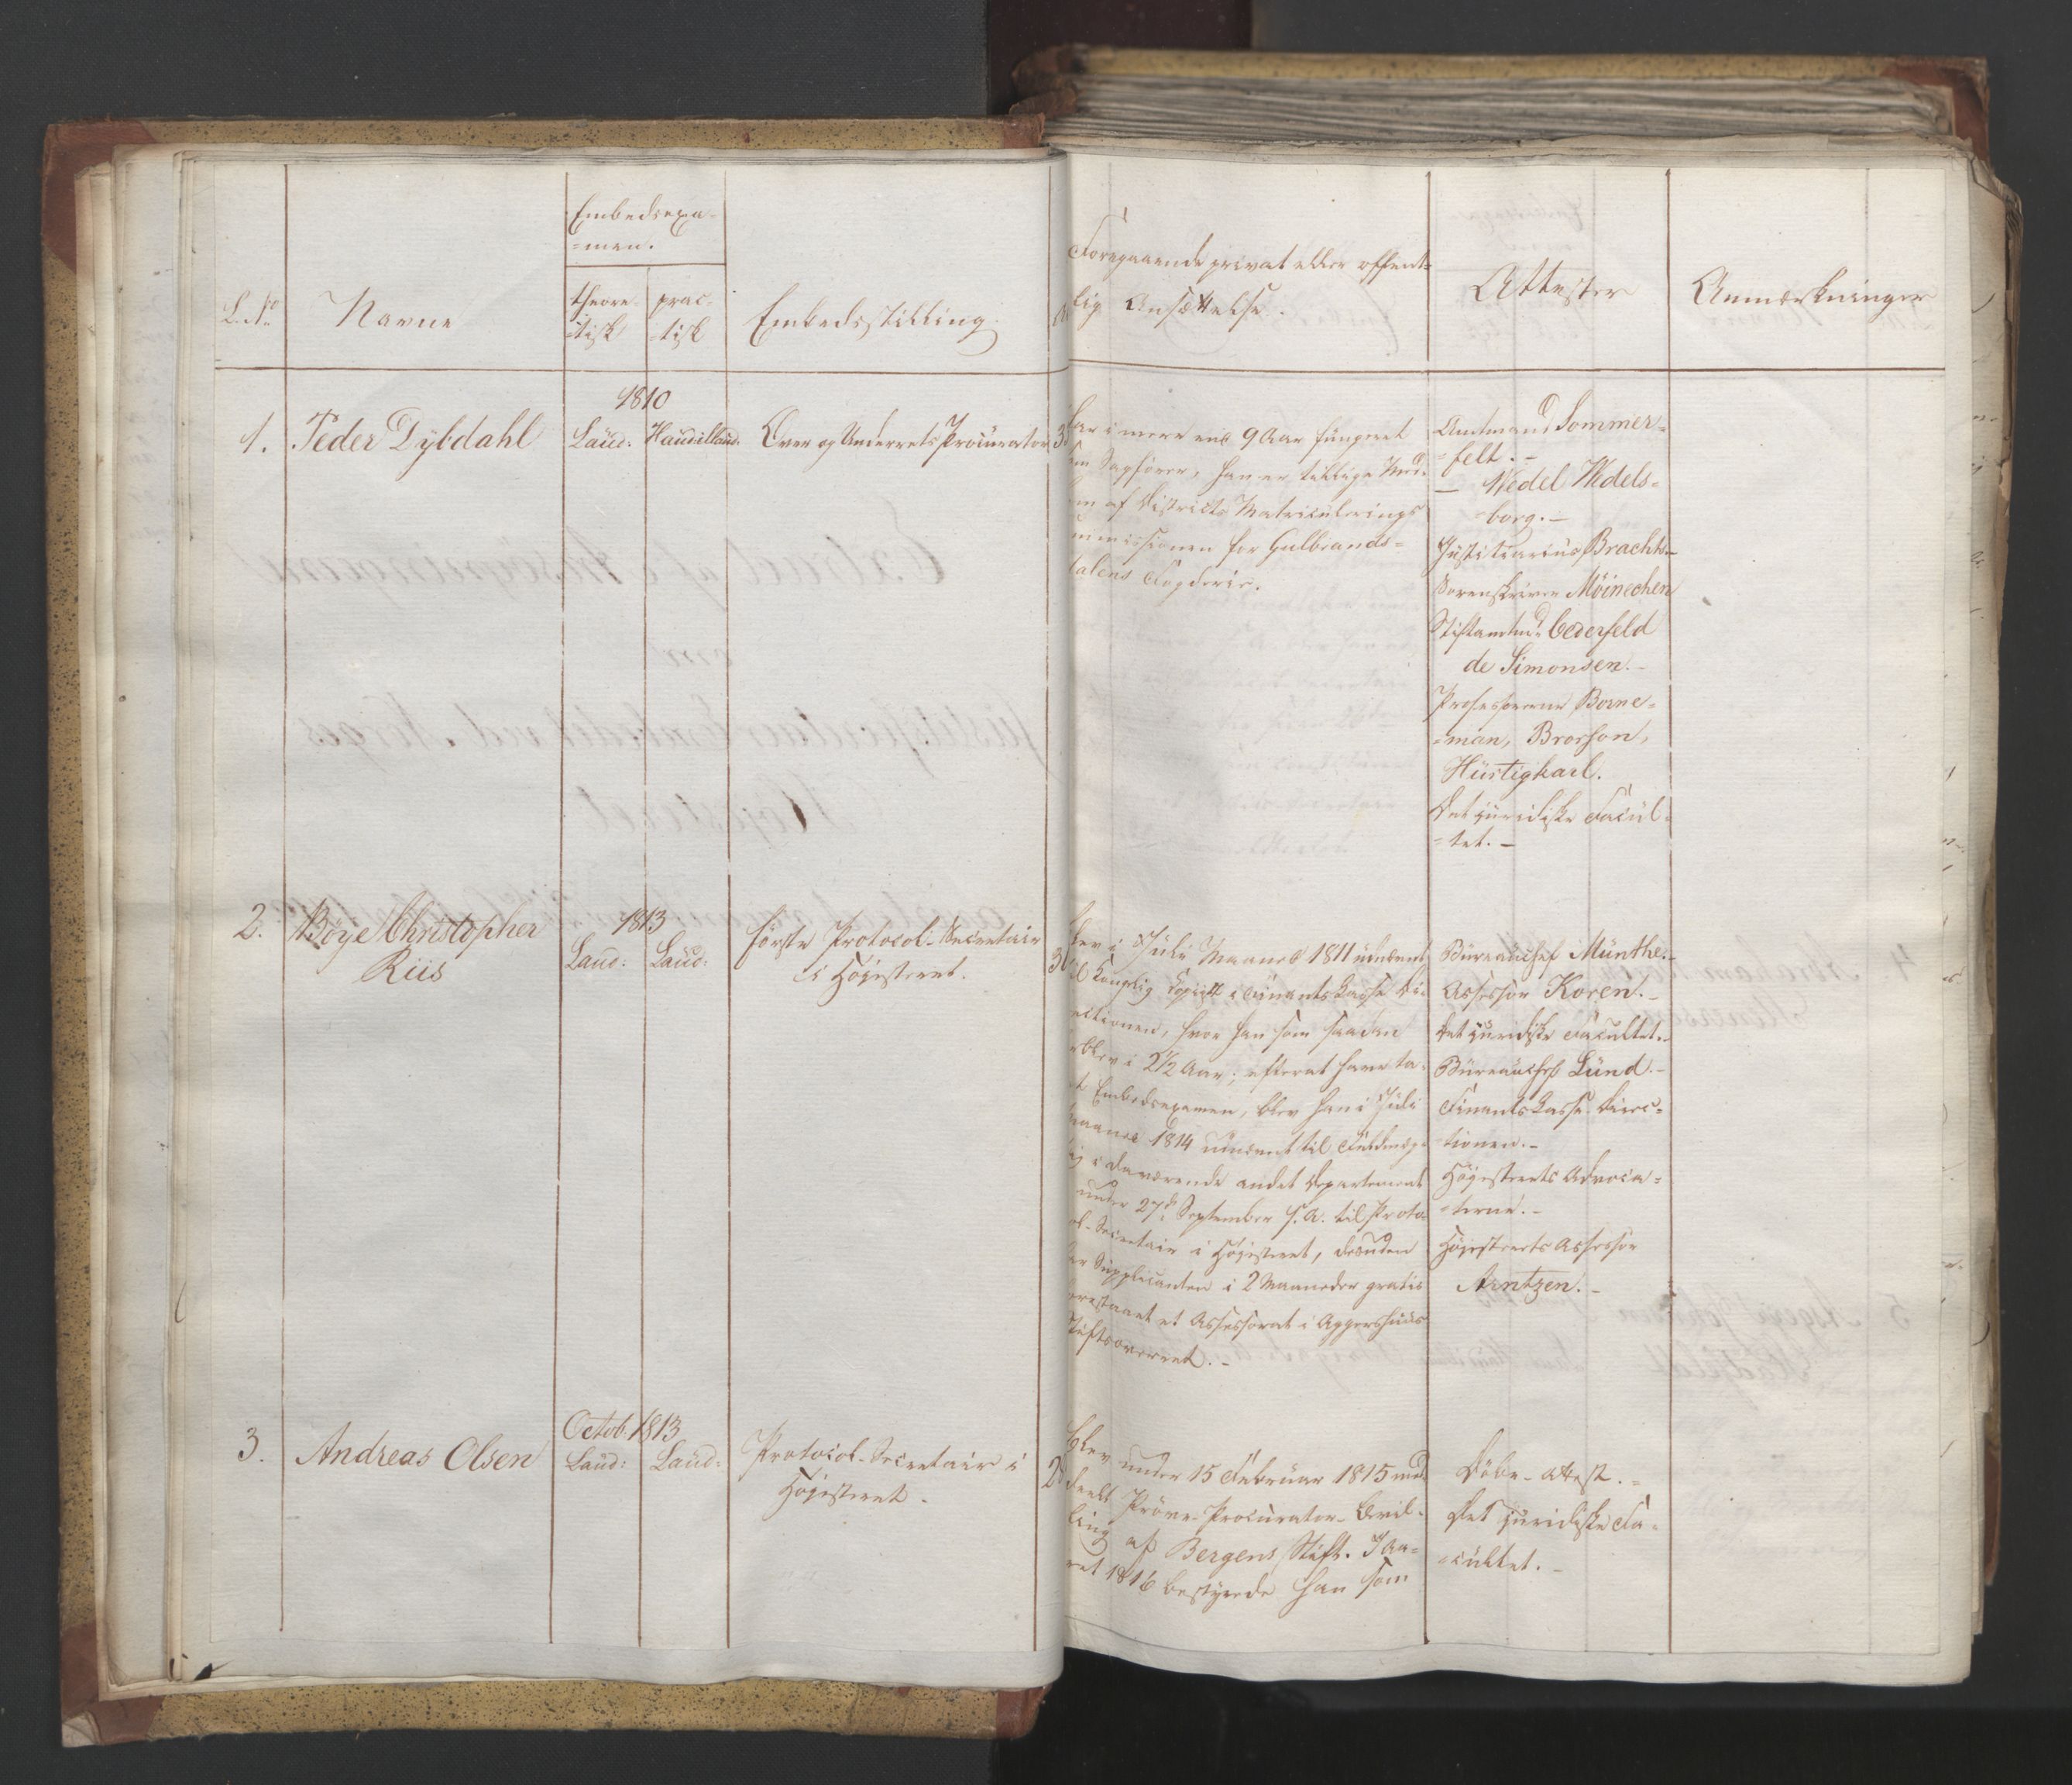 L. No
Navne
Embedsexa-
=men.
theore-
=tisk
prac-
=tisk
Embedsstilling.
Foregaaende privat eller offent=
lig Ansættelse.
Attester
Anmærkninger
1.
Peder Dybdahl
1810
Laud:
Haud illaud:
Over og Underrets Procurator
har i mere end 9 Aar fungeret
som Sagfører, han er tillige Med-
lem af Districts Matriculerings
Commissionen for Gulbrands=
dalens Fogderie.
Amtmand Sommer=
=felt. -
- Wedel Wedels=
=borg. -
Justitiarius Bracht -
Sorenskriver Möinechen
Stiftamtmd. Cederfeld
de Simonsen. -
Professorerne Borne=
=man, Brorson,
Hürtigkarl.
Det juridiske Facul=
=tet. -
2.
Böye Christopher
Riis
1813
Laud:
Laud:
første Protocol-Secretair
i Höjesteret.
3
blev i Julii Maaned 1811 udnævnt
til kongelig Copiist i Finantskasse Di-
rectionen, hvor han som saadan
forblev i 2½ Aar; efterat have ta-
get Embedsexamen, blev han i Juli
Maaned 1814 udnævnt til Fuldmæg-
tig i daværende andet Departement
under 27de September s. A. til Proto-
col-Secretair i Höjesteret, desuden
har Supplicanten i 2 Maaneder gratis
forestaaet et Assessorat i Aggershuus
Stiftsoverret. -
Büreauchef Münthe. -
Assessor Koren. -
Det juridiske Facultet. -
Büreauchef Lünd. -
Finantskasse Direc=
tionen. -
Höjesterets Advoca=
=terne. -
Höjesterets Assessor
Arntzen. -
3.
Andreas Olsen
Octob. 1813
Laud:
Laud:
Protocol-Secretair i
Höjesteret -
2
blev under 15 Februar 1815 med
deelt Pröve-Procurator-Bevil-
ling af Bergens Stift. I Aa=
ret 1816 bestyrede han som
Döbe-Attest. -
Det juridiske Fa=
=cultet. -